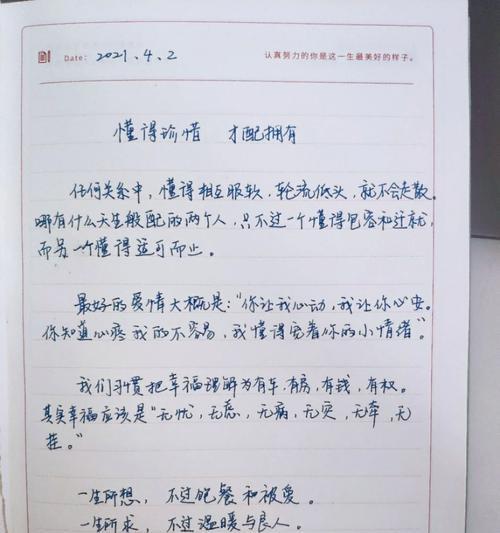 Date: 2021.4.2 认真努力的你是这一生最美好的样子。
懂得珍惜 才配拥有
任何关系中，懂得相互服软，轮流低头，就不会走散。
哪有什么天生般配的两个人，只不过一个懂得包容和迁就，
而另一个懂得适可而止。
最好的爱情大概是：“你让我心动，我让你心安。
你知道心疼我的不容易，我懂得宠着你的小情绪”。
我们习惯把幸福理解为有车，有房，有钱，有权。
其实幸福应该是“无忧，无虑，无病，无灾，无牵，无
挂。”
一生所想，不过饱餐和被爱。
一生所求，不过温暖与良人。